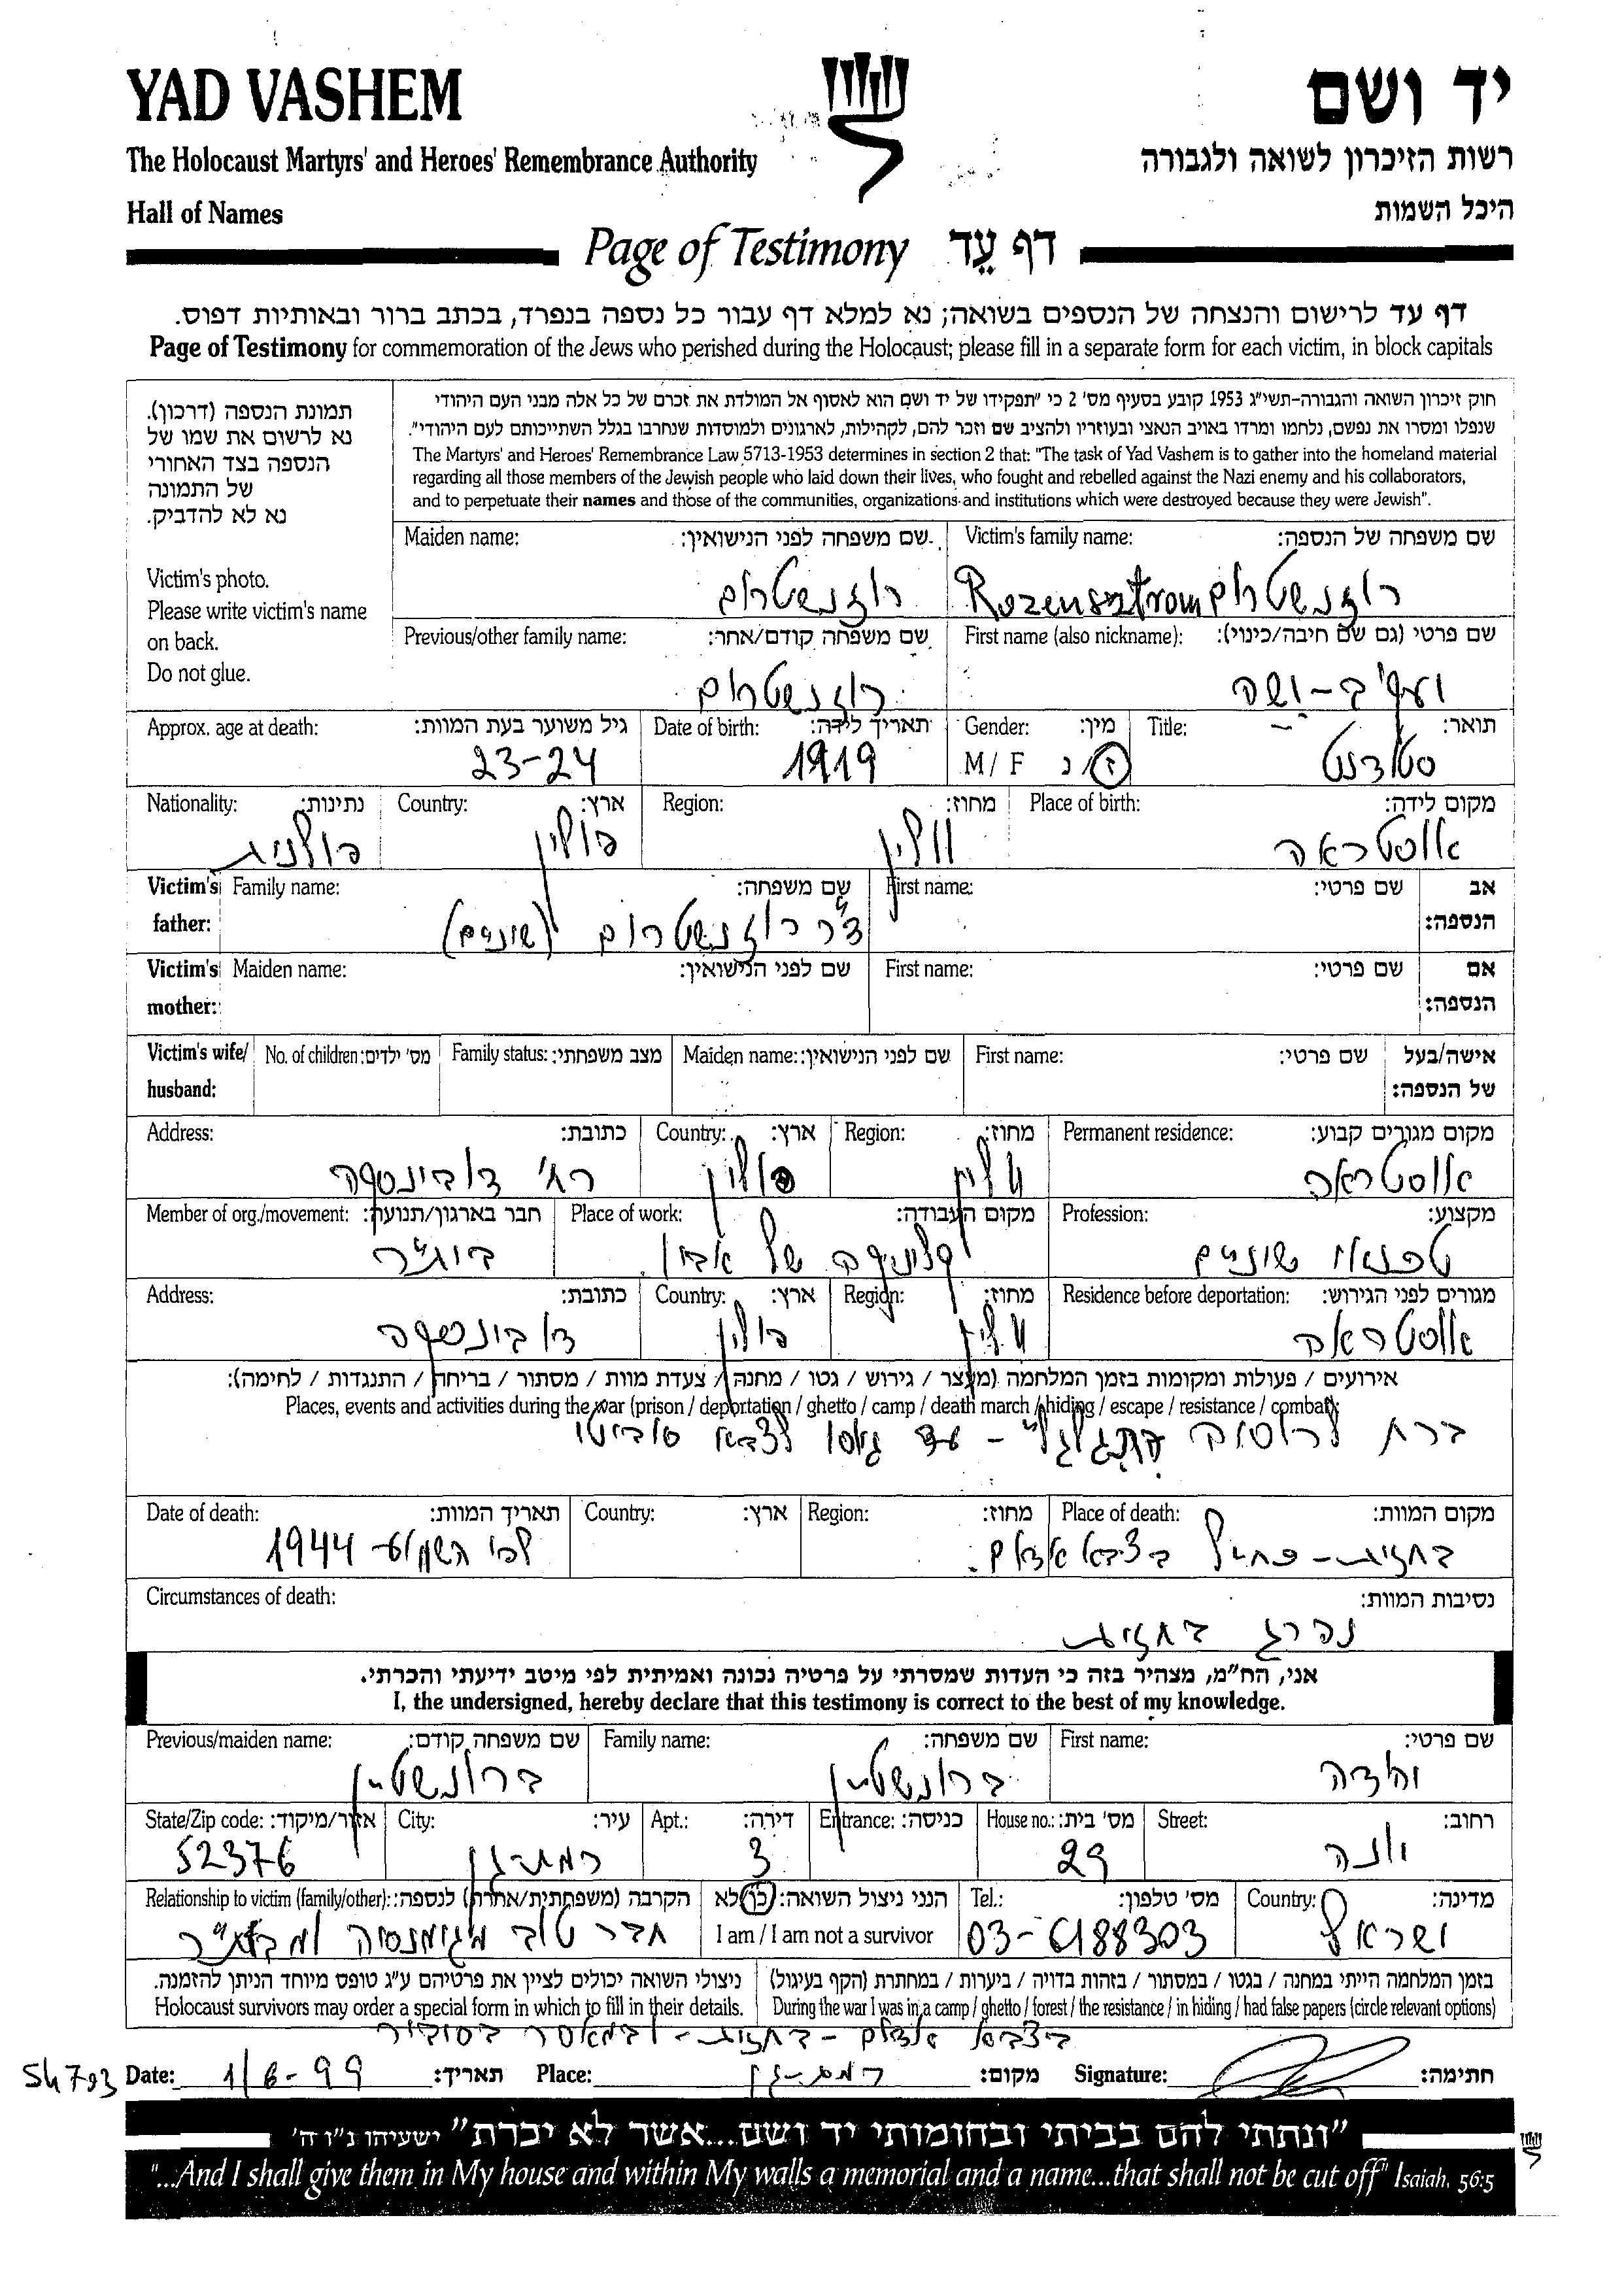 YAD VASHEM
יד ושם
The Holocaust Martyrs' and Heroes' Remembrance Authority
רשות הזיכרון לשואה ולגבורה
Hall of Names
היכל השמות
Page of Testimony דף עֵד
דף עד לרישום והנצחה של הנספים בשואה; נא למלא דף עבור כל נספה בנפרד, בכתב ברור ובאותיות דפוס.
Page of Testimony for commemoration of the Jews who perished during the Holocaust; please fill in a separate form for each victim, in block capitals
תמונת הנספה (דרכון).
נא לרשום את שמו של
הנספה בצד האחורי
של התמונה
נא לא להדביק.
Victim's photo.
Please write victim's name
on back.
Do not glue.
חוק זיכרון השואה והגבורה-תשי"ג 1953 קובע בסעיף מס' 2 כי "תפקידו של יד ושם הוא לאסוף אל המולדת את זכרם של כל אלה מבני העם היהודי
שנפלו ומסרו את נפשם, נלחמו ומרדו באויב הנאצי ובעוזריו ולהציב שם וזכר להם, לקהילות, לארגונים ולמוסדות שנחרבו בגלל השתייכותם לעם היהודי".
The Martyrs' and Heroes' Remembrance Law 5713-1953 determines in section 2 that: "The task of Yad Vashem is to gather into the homeland material
regarding all those members of the Jewish people who laid down their lives, who fought and rebelled against the Nazi enemy and his collaborators,
and to perpetuate their names and those of the communities, organizations and institutions which were destroyed because they were Jewish".
Victim's family name: שם משפחה של הנספה:
Rozensztrom רוזנשטרום
Maiden name: שם משפחה לפני הנישואין:
רוזנשטרום
First name (also nickname): שם פרטי (גם שם חיבה/כינוי):
Previous/other family name: שם משפחה קודם/אחר:
רוזנשטרום
Title: תואר:
סטודנט
Gender: מין:
M / F ז / נ
Date of birth: תאריך לידה:
1919
Approx. age at death: גיל משוער בעת המוות:
23-24
Place of birth: מקום לידה:
אוסטראה
Region: מחוז:
ווולין
Country: ארץ:
פולין
Nationality: נתינות:
פולנית
Victim's father: אב הנספה:
First name: שם פרטי:
Family name: שם משפחה:
ד"ר רוזנשטרום (שיניים)
Victim's mother: אם הנספה:
First name: שם פרטי:
Maiden name: שם לפני הנישואין:
Victim's wife/ husband: אישה/בעל של הנספה:
First name: שם פרטי:
Maiden name: שם לפני הנישואין:
Family status: מצב משפחתי:
No. of children: מס' ילדים:
Permanent residence: מקום מגורים קבוע:
אוסטראה
Region: מחוז:
ווולין
Country: ארץ:
פולין
Address: כתובת:
רח' דובינסקה
Profession: מקצוע:
טכנאי שיניים
Place of work: מקום העבודה:
קליניקה של אביו
Member of org./movement: חבר בארגון/תנועה:
בית"ר
Residence before deportation: מגורים לפני הגירוש:
אוסטראה
Region: מחוז:
ווולין
Country: ארץ:
פולין
Address: כתובת:
דובינסקה
אירועים / פעולות ומקומות בזמן המלחמה (מעצר / גירוש / גטו / מחנה / צעדת מוות / מסתור / בריחה / התנגדות / לחימה):
Places, events and activities during the war (prison / deportation / ghetto / camp / death march / hiding / escape / resistance / combat):
ברח לרוסיה התגלגל - עד גיוסו לצבא סובייטי
Place of death: מקום המוות:
בחזית - כחייל בצבא אדום.
Region: מחוז:
Country: ארץ:
Date of death: תאריך המוות:
1944
Circumstances of death: נסיבות המוות:
נהרג בחזית
אני, הח"מ, מצהיר בזה כי העדות שמסרתי על פרטיה נכונה ואמיתית לפי מיטב ידיעתי והכרתי.
I, the undersigned, hereby declare that this testimony is correct to the best of my knowledge.
First name: שם פרטי:
יהודה
Family name: שם משפחה:
ברונשטיין
Previous/maiden name: שם משפחה קודם:
ברונשטיין
Street: רחוב:
יונה
House no.: מס' בית:
29
Entrance: כניסה:
Apt.: דירה:
3
City: עיר:
רמת-גן
State/Zip code: אזור/מיקוד:
52376
Country: מדינה:
ישראל
Tel.: מס' טלפון:
03-6188303
הנני ניצול השואה: כן לא
I am / I am not a survivor
Relationship to victim (family/other): הקרבה (משפחתית/אחרת) לנספה:
חבר טוב מגימנסיה ומבית"ר
בזמן המלחמה הייתי במחנה / בגטו / במסתור / בזהות בדויה / ביערות / במחתרת (הקף בעיגול)
During the war I was in a camp / ghetto / forest / the resistance / in hiding / had false papers (circle relevant options)
ניצולי השואה יכולים לציין את פרטיהם ע"ג טופס מיוחד הניתן להזמנה.
Holocaust survivors may order a special form in which to fill in their details.
בצבא אדום - בחזית - ובמאסר בסיביר
Signature: חתימה:
Place: מקום:
רמת-גן
Date: תאריך:
1/6-99
"ונתתי להם בביתי ובחומותי יד ושם...אשר לא יכרת" ישעיהו נ"ו ה'
"...And I shall give them in My house and within My walls a memorial and a name...that shall not be cut off" Isaiah, 56:5